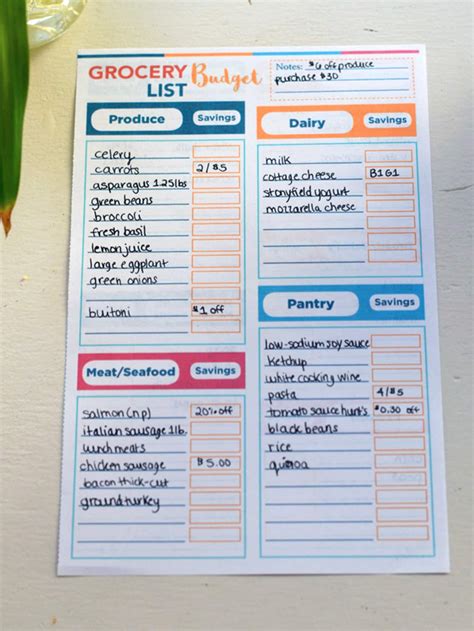 GROCERY LIST Budget
Notes: $6 off produce
purchase $30
Produce Savings
celery
carrots 2/$5
asparagus 1.25lbs
green beans
broccoli
fresh basil
lemon juice
large eggplant
green onions
buitoni $1 off
Meat/Seafood Savings
salmon (np) 20% off
italian sausage 1lb.
lunch meats
chicken sausage $5.00
bacon thick-cut
ground turkey
Dairy Savings
milk
cottage cheese B1G1
stonyfield yogurt
mozzarella cheese
Pantry Savings
low-sodium soy sauce
ketchup
white cooking wine
pasta 4/$5
tomato sauce hunt's $0.30 off
black beans
rice
quinoa